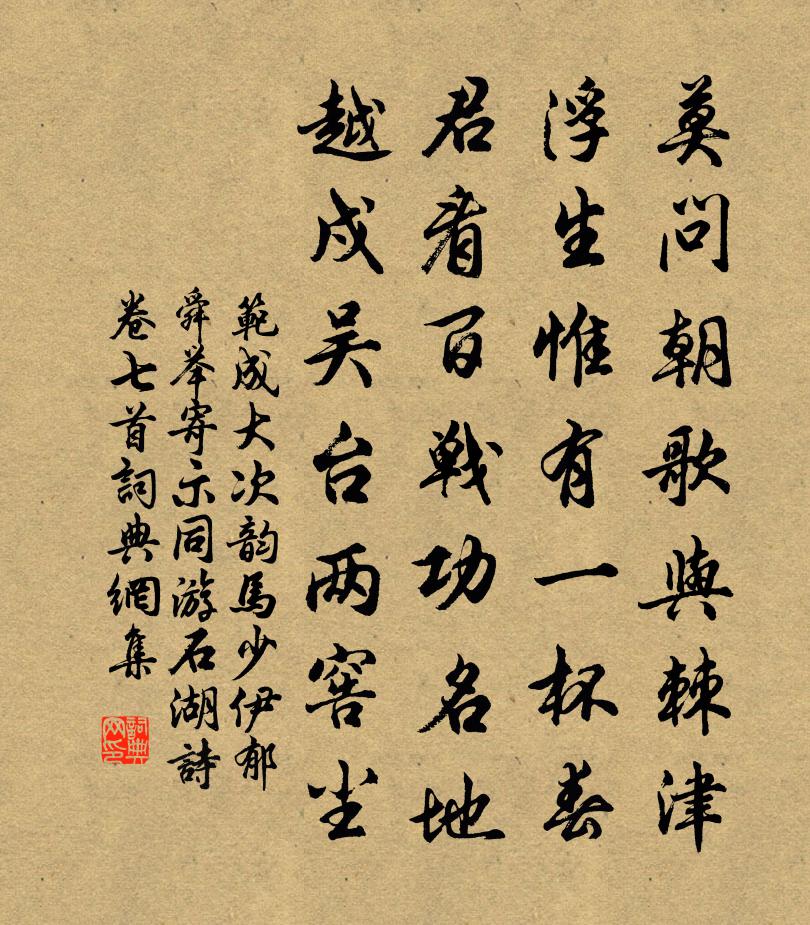 莫问朝歌與棘津
浮生惟有一杯春
君看百戰功名地
越戍吴台两窖尘
範成大次韵馬少伊郁
舜举寄示同游石湖詩
卷七首詞典網集
詞典
网印